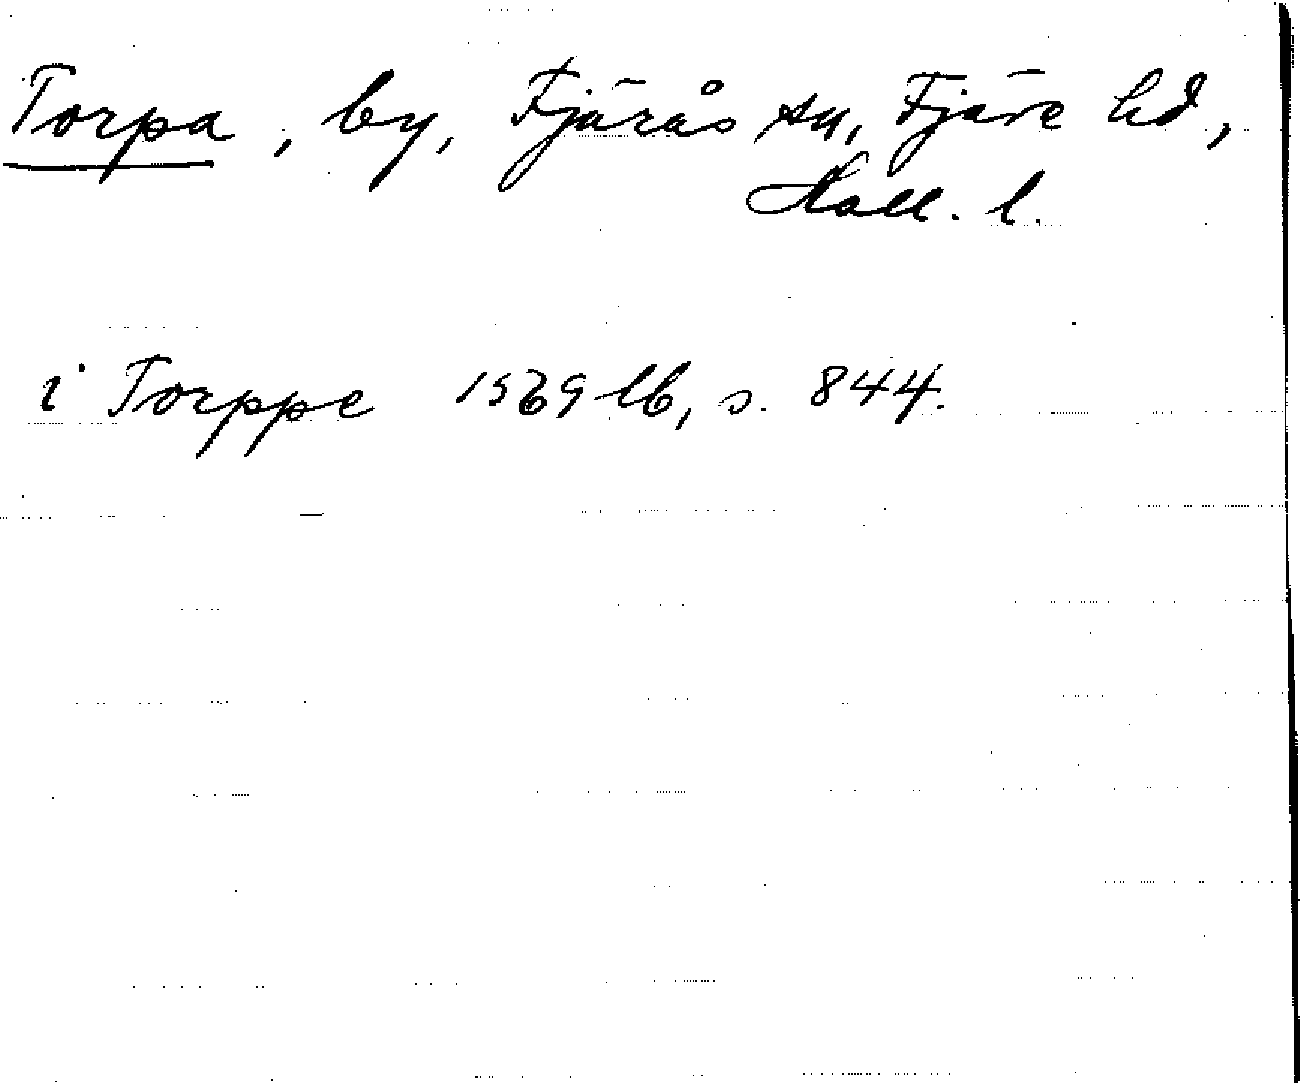 Torpa, by, Fjärås sn, Fjäre hd,
Hall. l.
i Torppe 1569 lb, s. 844.